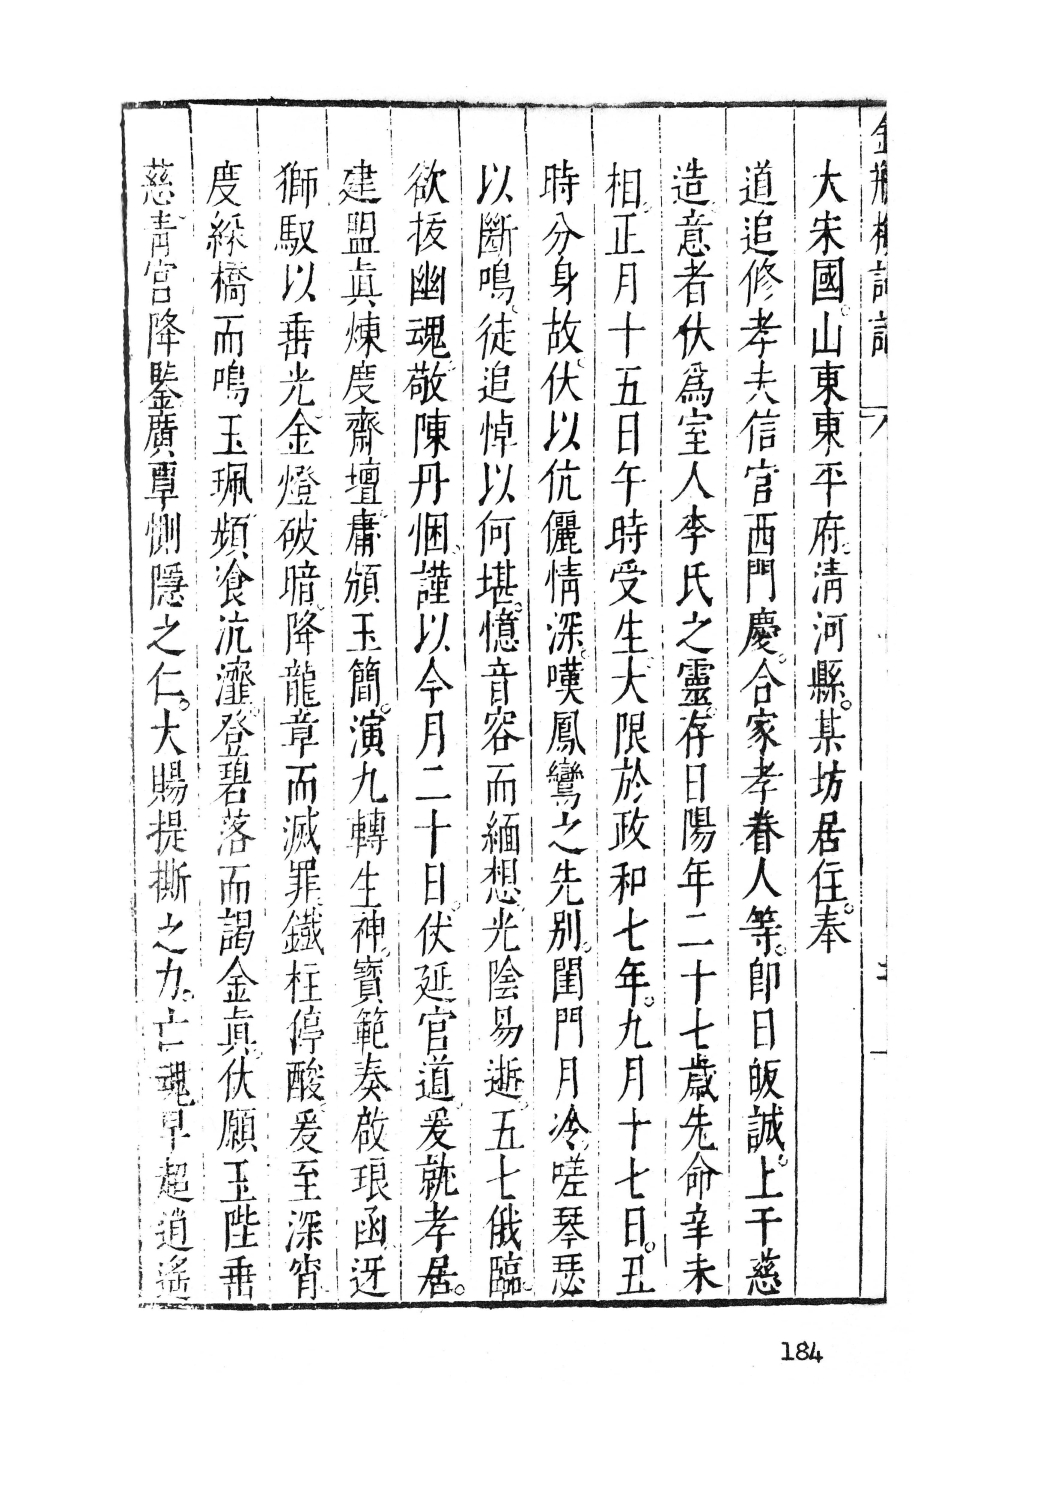 金瓶梅詞話
大宋國。山東東平府。清河縣。某坊居住。奉
道追修孝夫信官西門慶。合家孝眷人等。卽日皈誠。上干慈
造意者伏爲室人李氏之靈。存日陽年二十七歲先命辛未
相。正月十五日午時受生。大限於政和七年。九月十七日。丑
時分身故。伏以伉儷情深。嘆鳳鸞之先別。閨門月冷。嗟琴瑟
以斷鳴。徒追悼以何堪。憶音容而緬想。光陰易逝。五七俄臨。
欲拔幽魂。敬陳丹悃。謹以今月二十日。伏延官道。爰就孝居。
建盟眞煉度齋壇。庸頒玉簡。演九轉生神。寶範奏啟琅函。迓
獅馭以垂光。金燈破暗。降龍章而滅罪。鐵柱停酸。爰至深宵。
度綵橋而鳴玉珮。頻飡沆瀣。登碧落而謁金眞。伏願玉陛垂
慈青宮降鑒。廣覃惻隱之仁。大賜提撕之力。亡魂早超逍遙
184